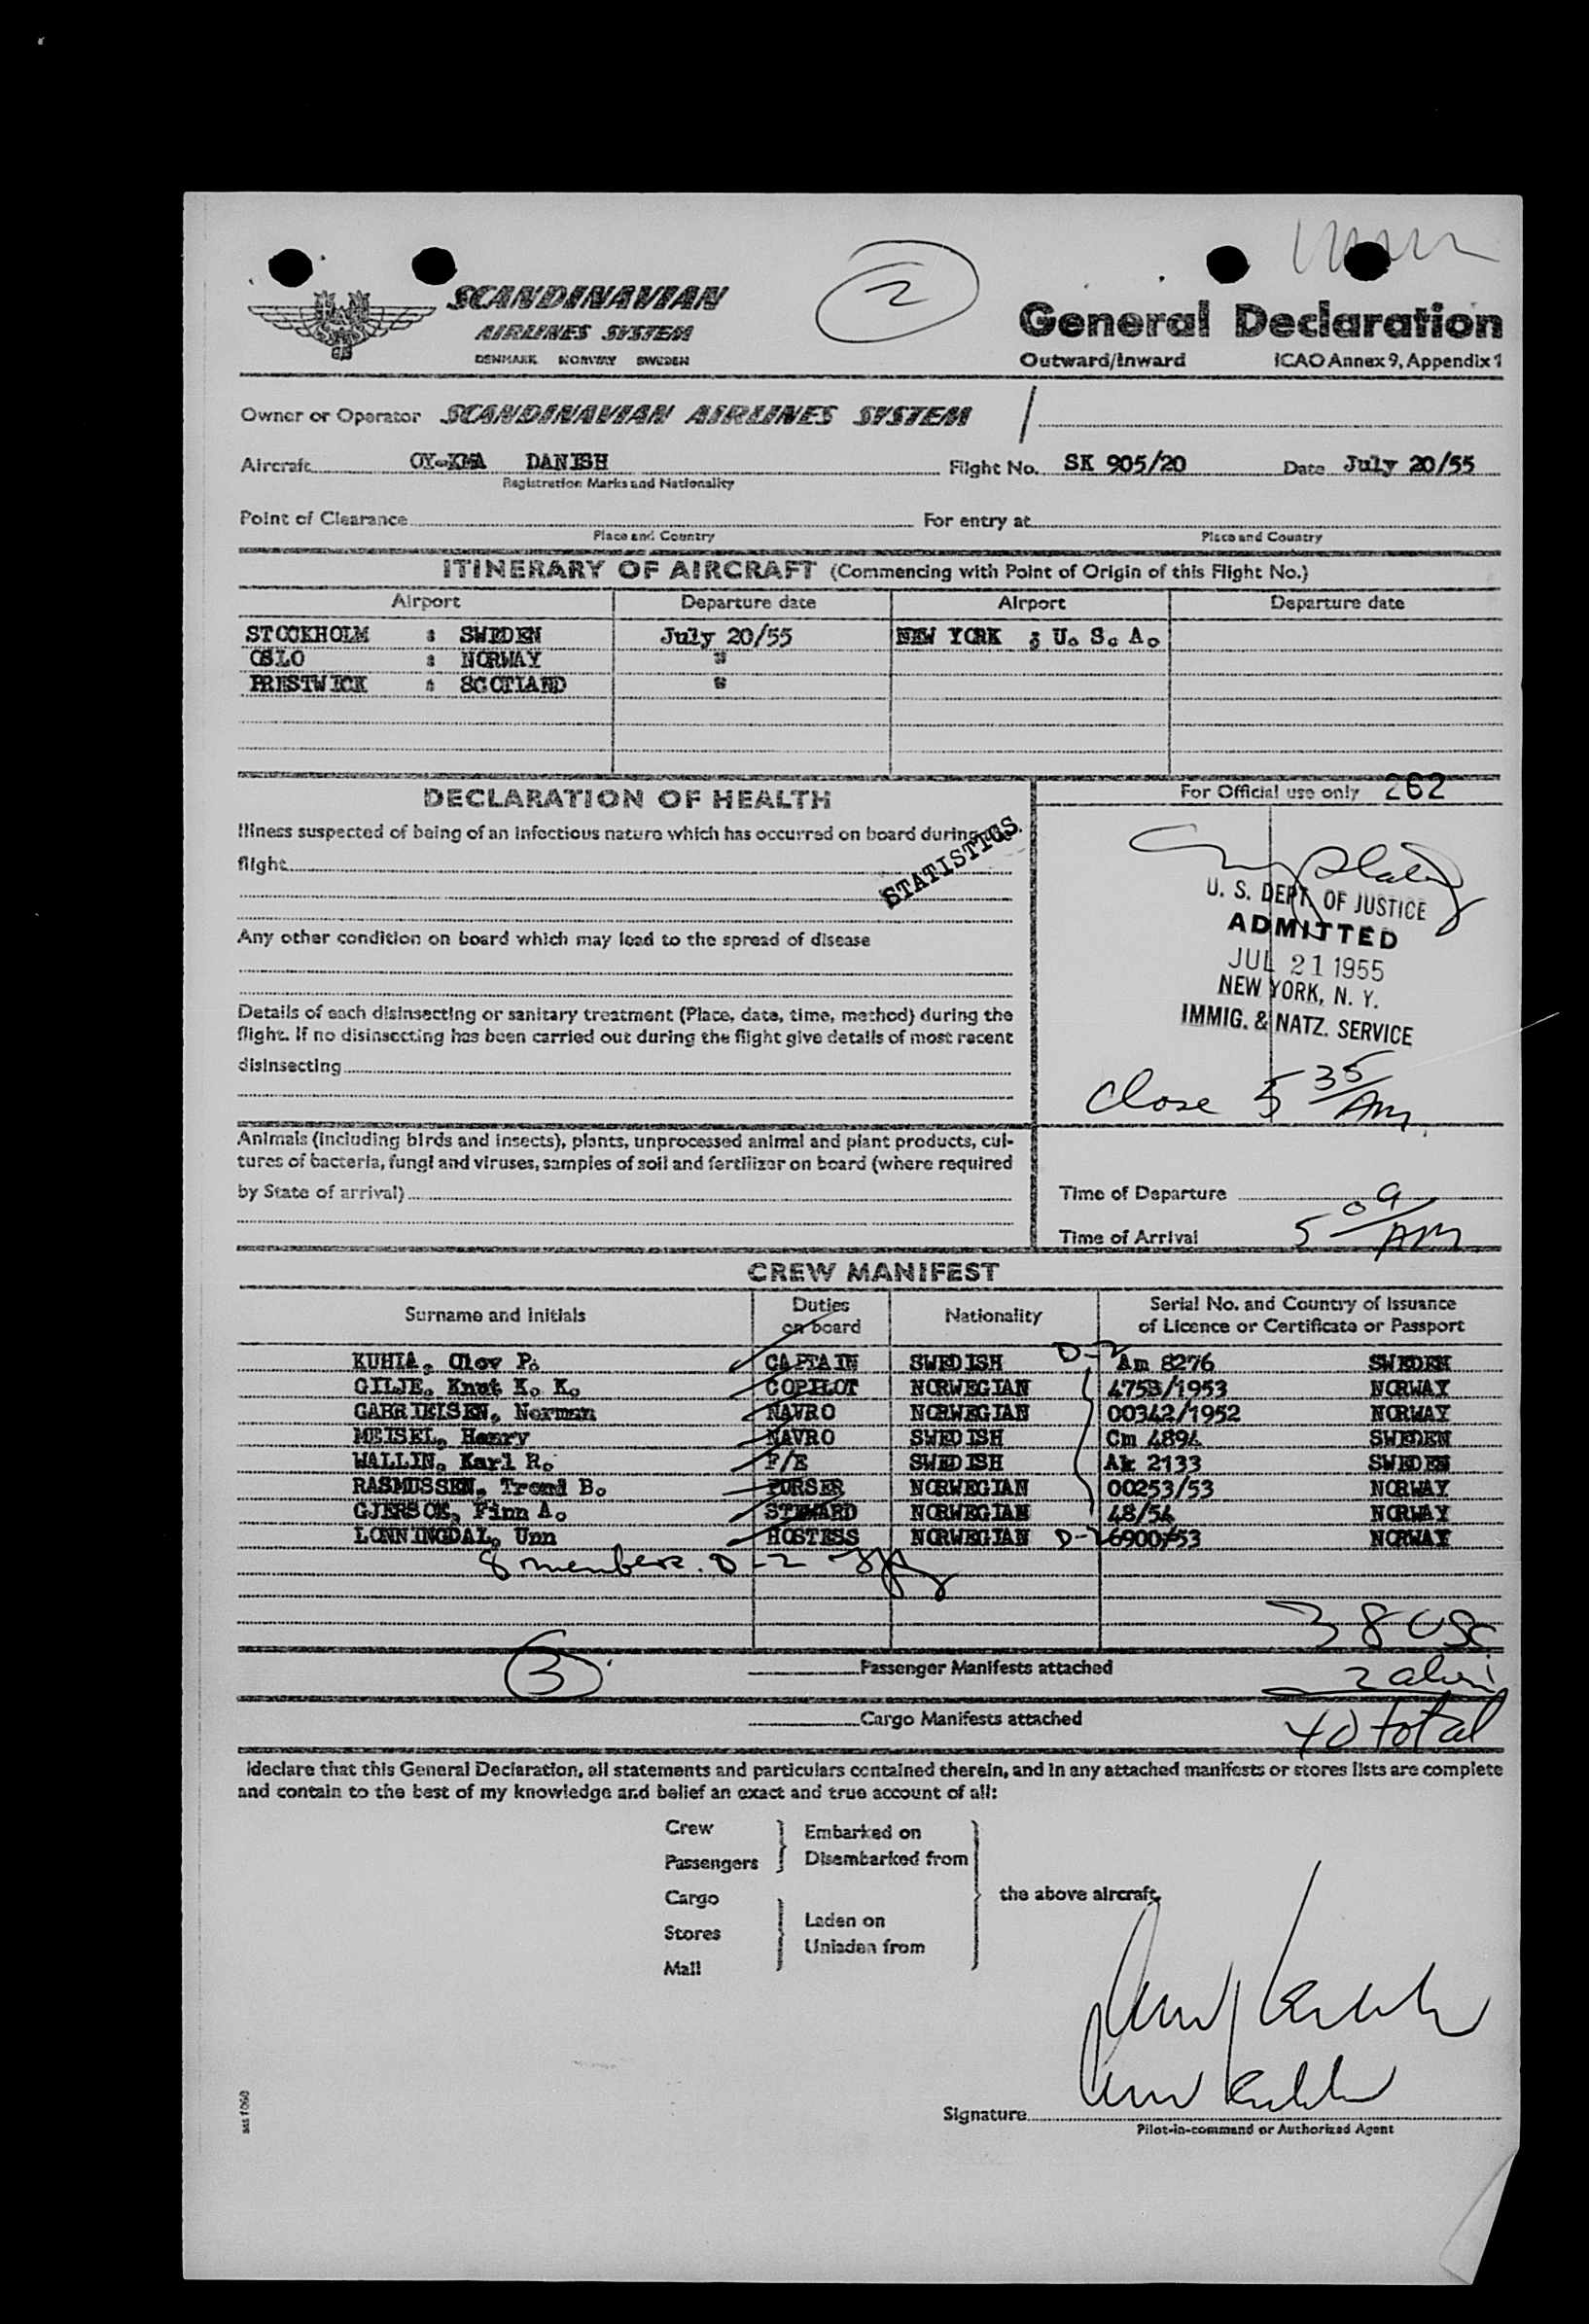 2
SCANDINAVIAN
AIRLINES SYSTEM
DENMARK NORWAY SWEDEN
General Declaration
Outward/Inward ICAO Annex 9, Appendix 1
Owner or Operator SCANDINAVIAN AIRLINES SYSTEM
Aircraft DANISH Flight No. SK 905/20 Date July 20/55
Registration Marks and Nationality
Point of Clearance For entry at
Place and Country Place and Country
ITINERARY OF AIRCRAFT (Commencing with Point of Origin of this Flight No.)
Airport Departure date Airport Departure date
STOCKHOLM : SWEDEN July 20/55 NEW YORK : U. S. A.
OSLO : NORWAY "
PRESTWICK : SCOTLAND "
DECLARATION OF HEALTH
For Official use only 262
Illness suspected of being of an infectious nature which has occurred on board during
flight
STATISTICS
Any other condition on board which may lead to the spread of disease
Details of each disinsecting or sanitary treatment (Place, date, time, method) during the
flight. If no disinsecting has been carried out during the flight give details of most recent
disinsecting
U. S. DEPT. OF JUSTICE
ADMITTED
JUL 21 1955
NEW YORK, N. Y.
IMMIG. & NATZ. SERVICE
Close 5 35/AM
Animals (including birds and insects), plants, unprocessed animal and plant products, cul-
tures of bacteria, fungi and viruses, samples of soil and fertilizer on board (where required
by State of arrival)
Time of Departure
Time of Arrival 5 09/AM
CREW MANIFEST
Surname and Initials Duties on board Nationality Serial No. and Country of Issuance of Licence or Certificate or Passport
KUHLA, Olov P. CAPTAIN SWEDISH D-2 Am 8276 SWEDEN
GILJE, Knut K. K. COPILOT NORWEGIAN 4753/1953 NORWAY
GABRIELSEN, Norman NAVRO NORWEGIAN 00342/1952 NORWAY
MEISEL, Henry NAVRO SWEDISH Cm 4894 SWEDEN
WALLIN, Karl R. F/E SWEDISH Ak 2133 SWEDEN
RASMUSSEN, Trond B. PURSER NORWEGIAN 00253/53 NORWAY
GJERSOE, Finn A. STEWARD NORWEGIAN 48/54 NORWAY
LONNINGDAL, Unn HOSTESS NORWEGIAN D-2 6900/53 NORWAY
8 members. D-2
38 USC
3 Passenger Manifests attached
2 alien
Cargo Manifests attached
40 total
I declare that this General Declaration, all statements and particulars contained therein, and in any attached manifests or stores lists are complete
and contain to the best of my knowledge and belief an exact and true account of all:
Crew
Passengers
Embarked on
Disembarked from
Cargo
Stores
Mail
Laden on
Unladen from
the above aircraft.
Signature
Pilot-in-command or Authorized Agent
sas 1060